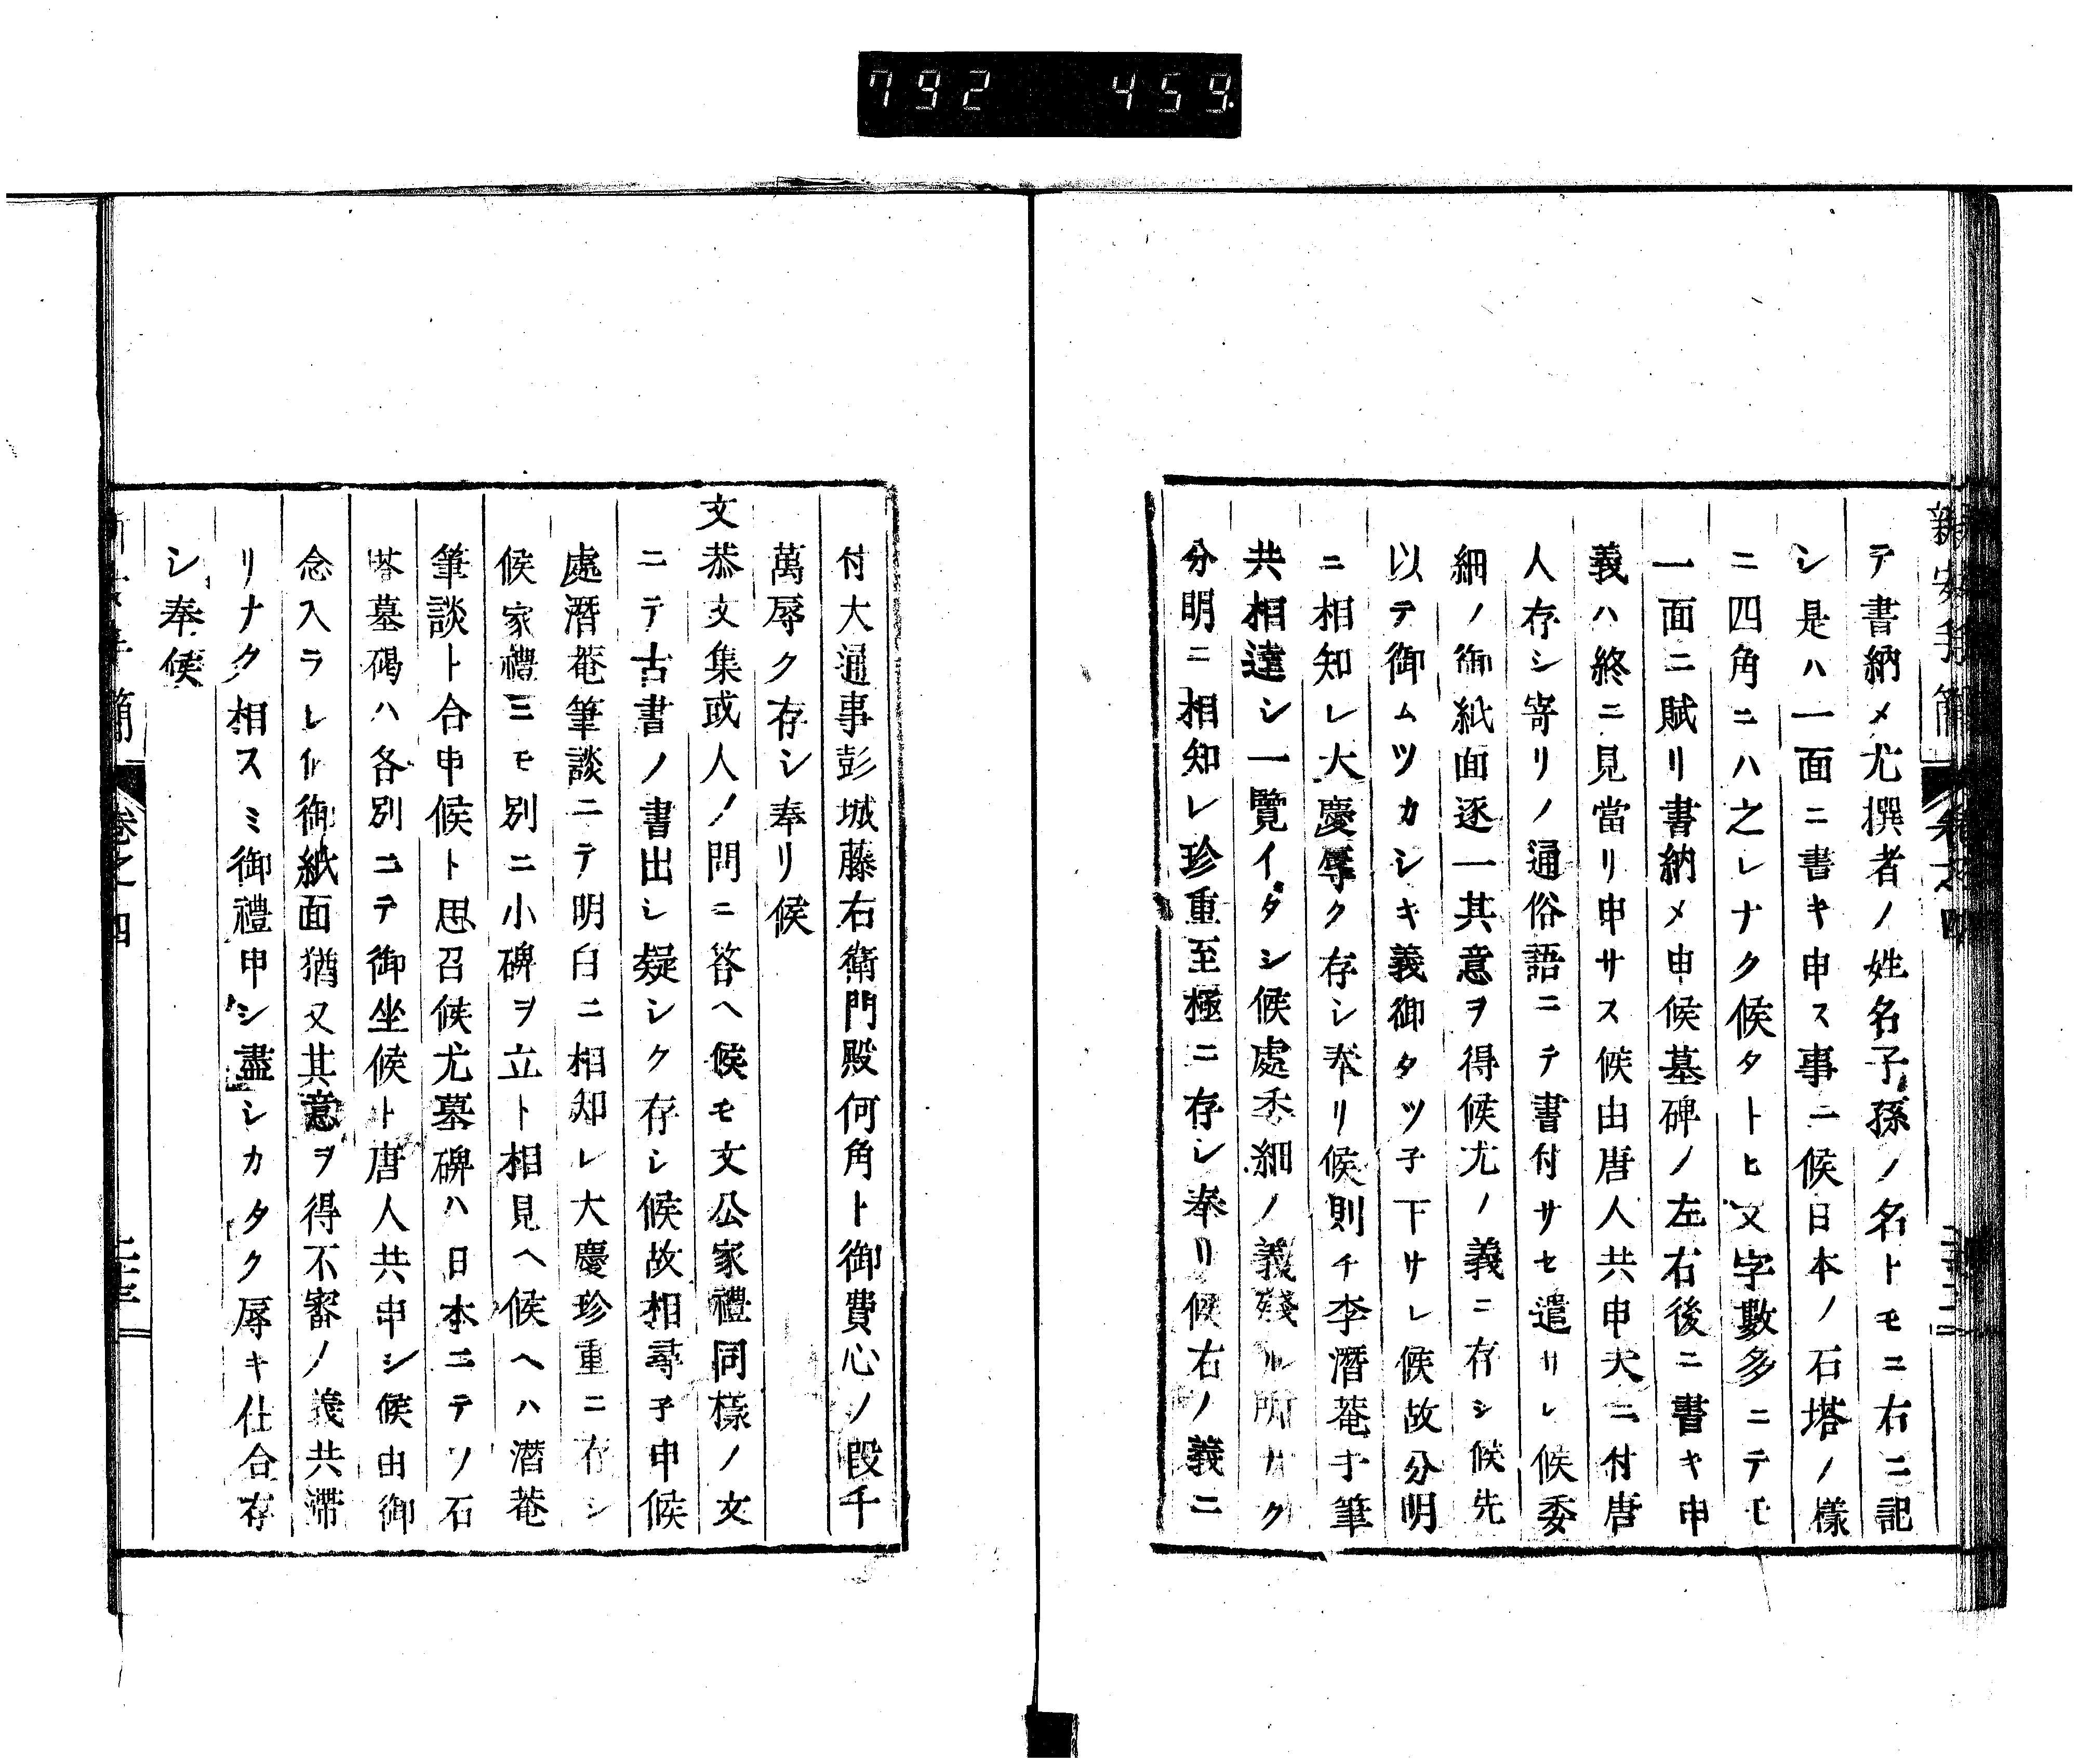 792 459
テ書納メ尤撰者ノ姓名子孫ノ名トモニ右ニ記
シ是ハ一面ニ書キ申ス事ニ候日本ノ石塔ノ様
ニ四角ニハ之レナク候タトヒ文字數多ニテモ
一面ニ賦リ書納メ申候墓碑ノ左右後ニ書キ申
義ハ終ニ見當リ申サス候由唐人共申夫ニ付唐
人存シ寄リノ通俗語ニテ書付サセ遣リレ候委
細ノ御紙面逐一其意ヲ得候尤ノ義ニ存シ候先
以テ御ムツカシキ義御タツ子下サレ候故分明
ニ相知レ大慶辱ク存シ奉リ候則チ李潛菴手筆
共相達シ一覽イタシ候處委細ノ義殘ル所ナク
分明ニ相知レ珍重至極ニ存シ奉リ候右ノ義ニ
付大通事彭城藤右衛門殿何角ト御費心ノ段千
萬辱ク存シ奉リ候
文恭文集或人ノ問ニ答ヘ候モ文公家禮同様ノ文
ニテ古書ノ書出シ疑シク存シ候故相尋子申候
處潛菴筆談ニテ明白ニ相知レ大慶珍重ニ存シ
候家禮ニモ別ニ小碑ヲ立ト相見ヘ候ヘハ潛菴
筆談ト合申候ト思召候尤墓碑ハ日本ニテソ石
塔墓碣ハ各別ニテ御坐候ト唐人共申シ候由御
念入ラレ御紙面猶又其意ヲ得不審ノ義共滯
リナク相スミ御禮申シ盡シカタク辱キ仕合存
シ奉候
卷之四